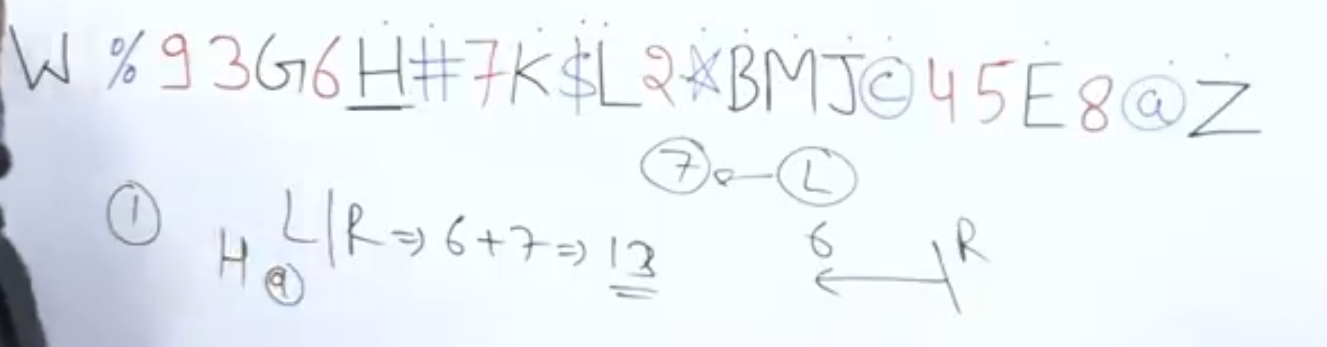 W % 9 3 G 6 H # 7 K $ L 2 * B M J © 4 5 E 8 @ Z
7 ← L
① L|R ⇒ 6+7 ⇒ 13 6 R
H @